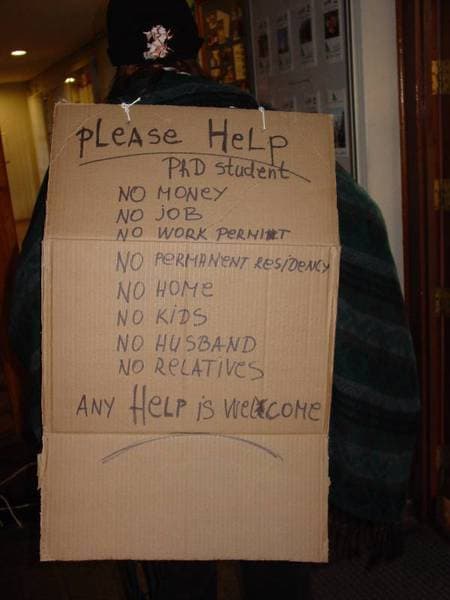 PLEASE HELP
PhD student
NO MONEY
NO JOB
NO WORK PERMIT
NO PERMANENT RESIDENCY
NO HOME
NO KIDS
NO HUSBAND
NO RELATIVES
ANY HELP is WELCOME